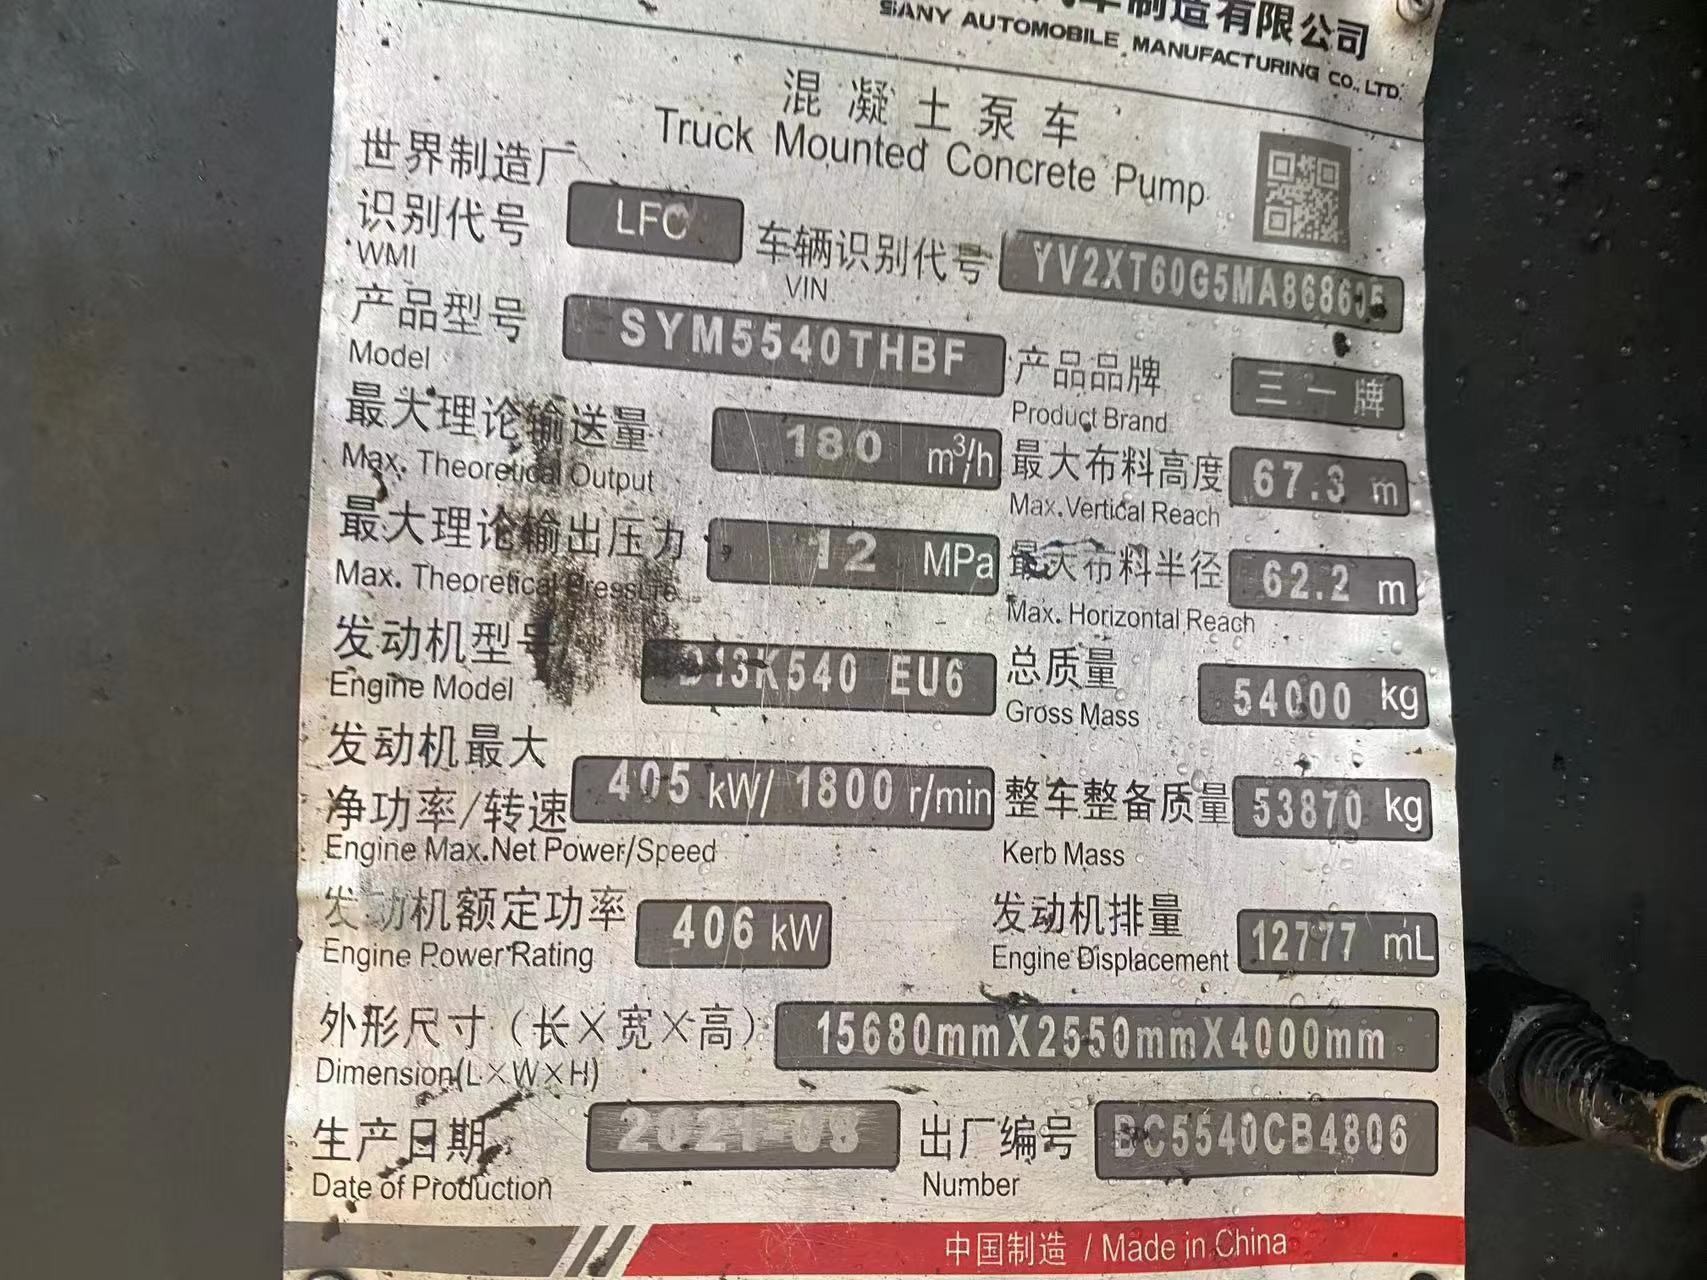 汽车制造有限公司
SANY AUTOMOBILE MANUFACTURING CO., LTD.
混凝土泵车
Truck Mounted Concrete Pump
世界制造厂
识别代号
WMI
LFC
车辆识别代号
VIN
产品型号
Model
SYM5540THBF
产品品牌
Product Brand
三一牌
最大理论输送量
Max. Theoretical Output
180 m³/h
最大布料高度
Max.Vertical Reach
67.3 m
最大理论输出压力
Max. Theoretical Pressure
12 MPa
最大布料半径
Max. Horizontal Reach
62.2 m
发动机型号
Engine Model
D13K540 EU6
总质量
Gross Mass
54000 kg
发动机最大
净功率/转速
Engine Max.Net Power/Speed
405 kW/ 1800 r/min
整车整备质量
Kerb Mass
53870 kg
发动机额定功率
Engine Power Rating
406 kW
发动机排量
Engine Displacement
12777 mL
外形尺寸（长×宽×高）
Dimension(L×W×H)
15680mmX2550mmX4000mm
生产日期
Date of Production
2021-08
出厂编号
Number
BC5540CB4806
中国制造 / Made in China